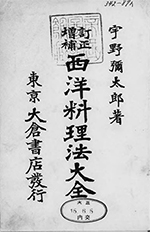 342-89八
宇野彌太郎著
訂正增補
西洋料理法大全
東京 大倉書店發行